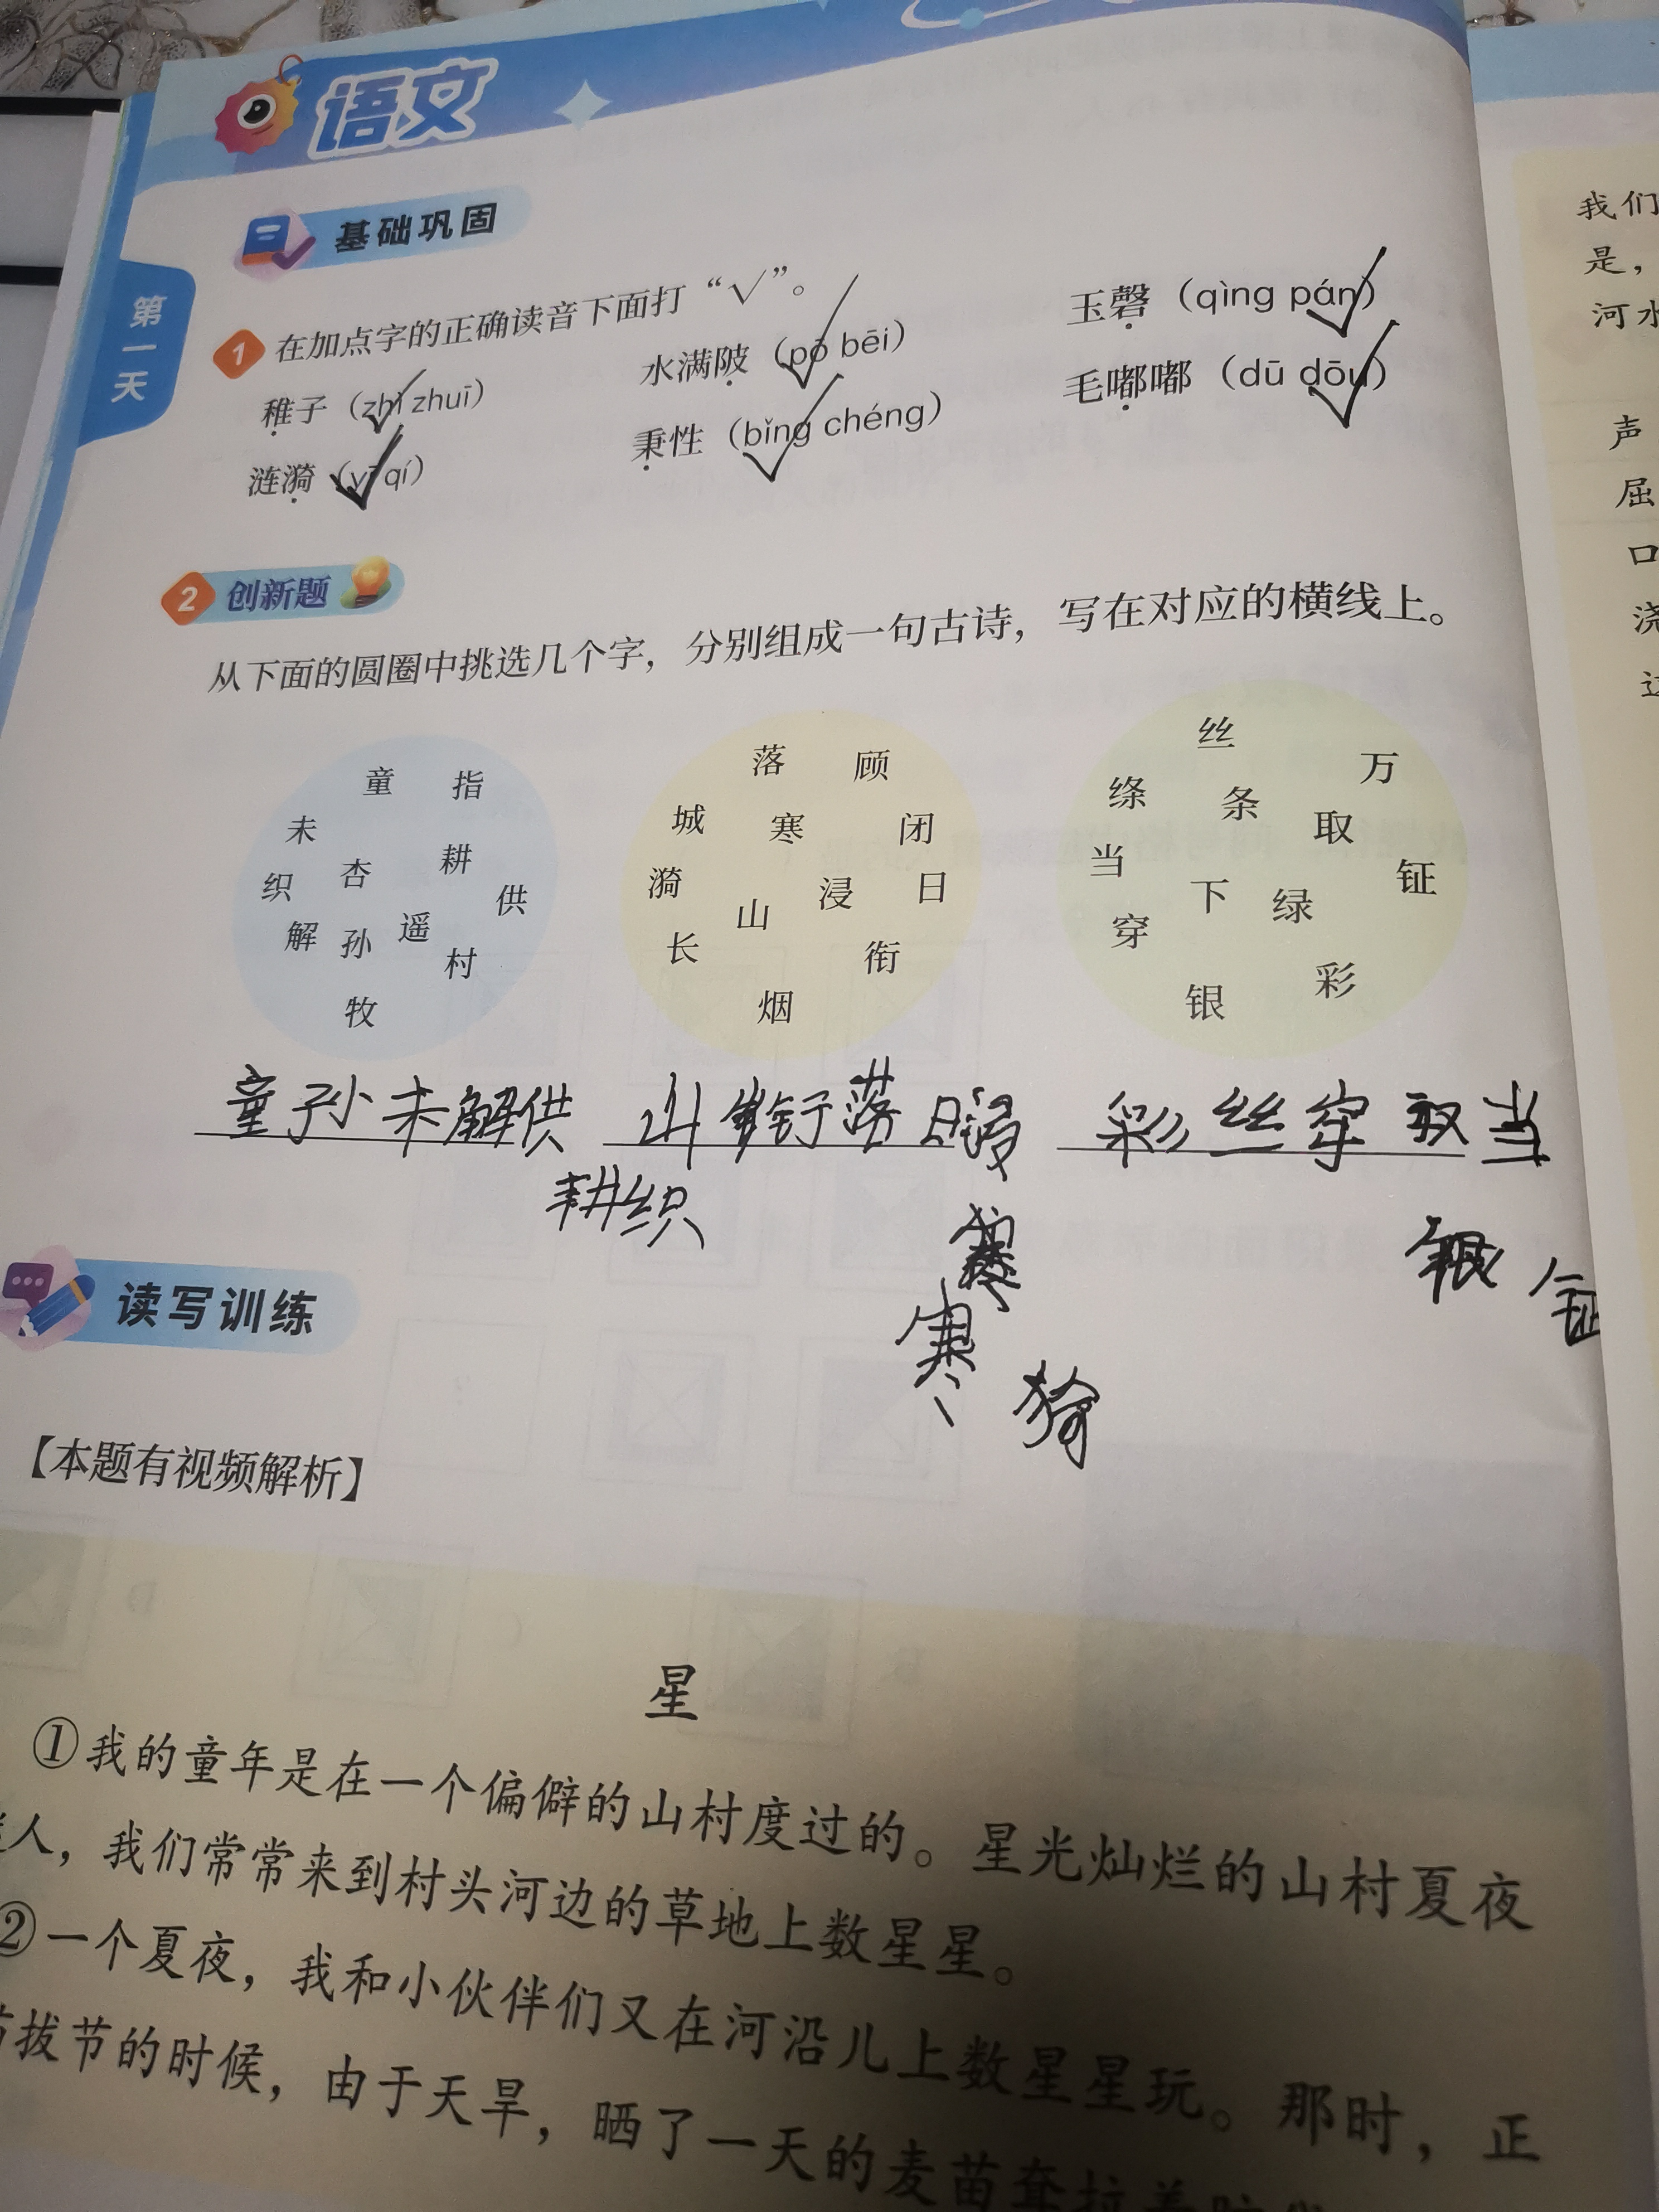 语文
基础巩固
第一天
1 在加点字的正确读音下面打“√”。
稚子（zhì zhuī） 水满陂（pō bēi） 玉磬（qìng pán）
涟漪（yī qí） 秉性（bǐng chéng） 毛嘟嘟（dū dōu）
2 创新题
从下面的圆圈中挑选几个字，分别组成一句古诗，写在对应的横线上。
童 指
未
杏 耕
织 供
解 孙 遥
村
牧
落 顾
城 寒 闭
漪 浸 日
山
长 衔
烟
丝
万
绦 条 取
当 钲
下 绿
穿
银 彩
童孙未解供
耕织
山衔落日浸
寒
漪
彩丝穿取当
银钲
读写训练
【本题有视频解析】
星
①我的童年是在一个偏僻的山村度过的。星光灿烂的山村夏夜
人，我们常常来到村头河边的草地上数星星。
②一个夏夜，我和小伙伴们又在河沿儿上数星星玩。那时，正
拔节的时候，由于天旱，晒了一天的麦苗耷拉着
我们
是，
河水
声
屈
口
浇